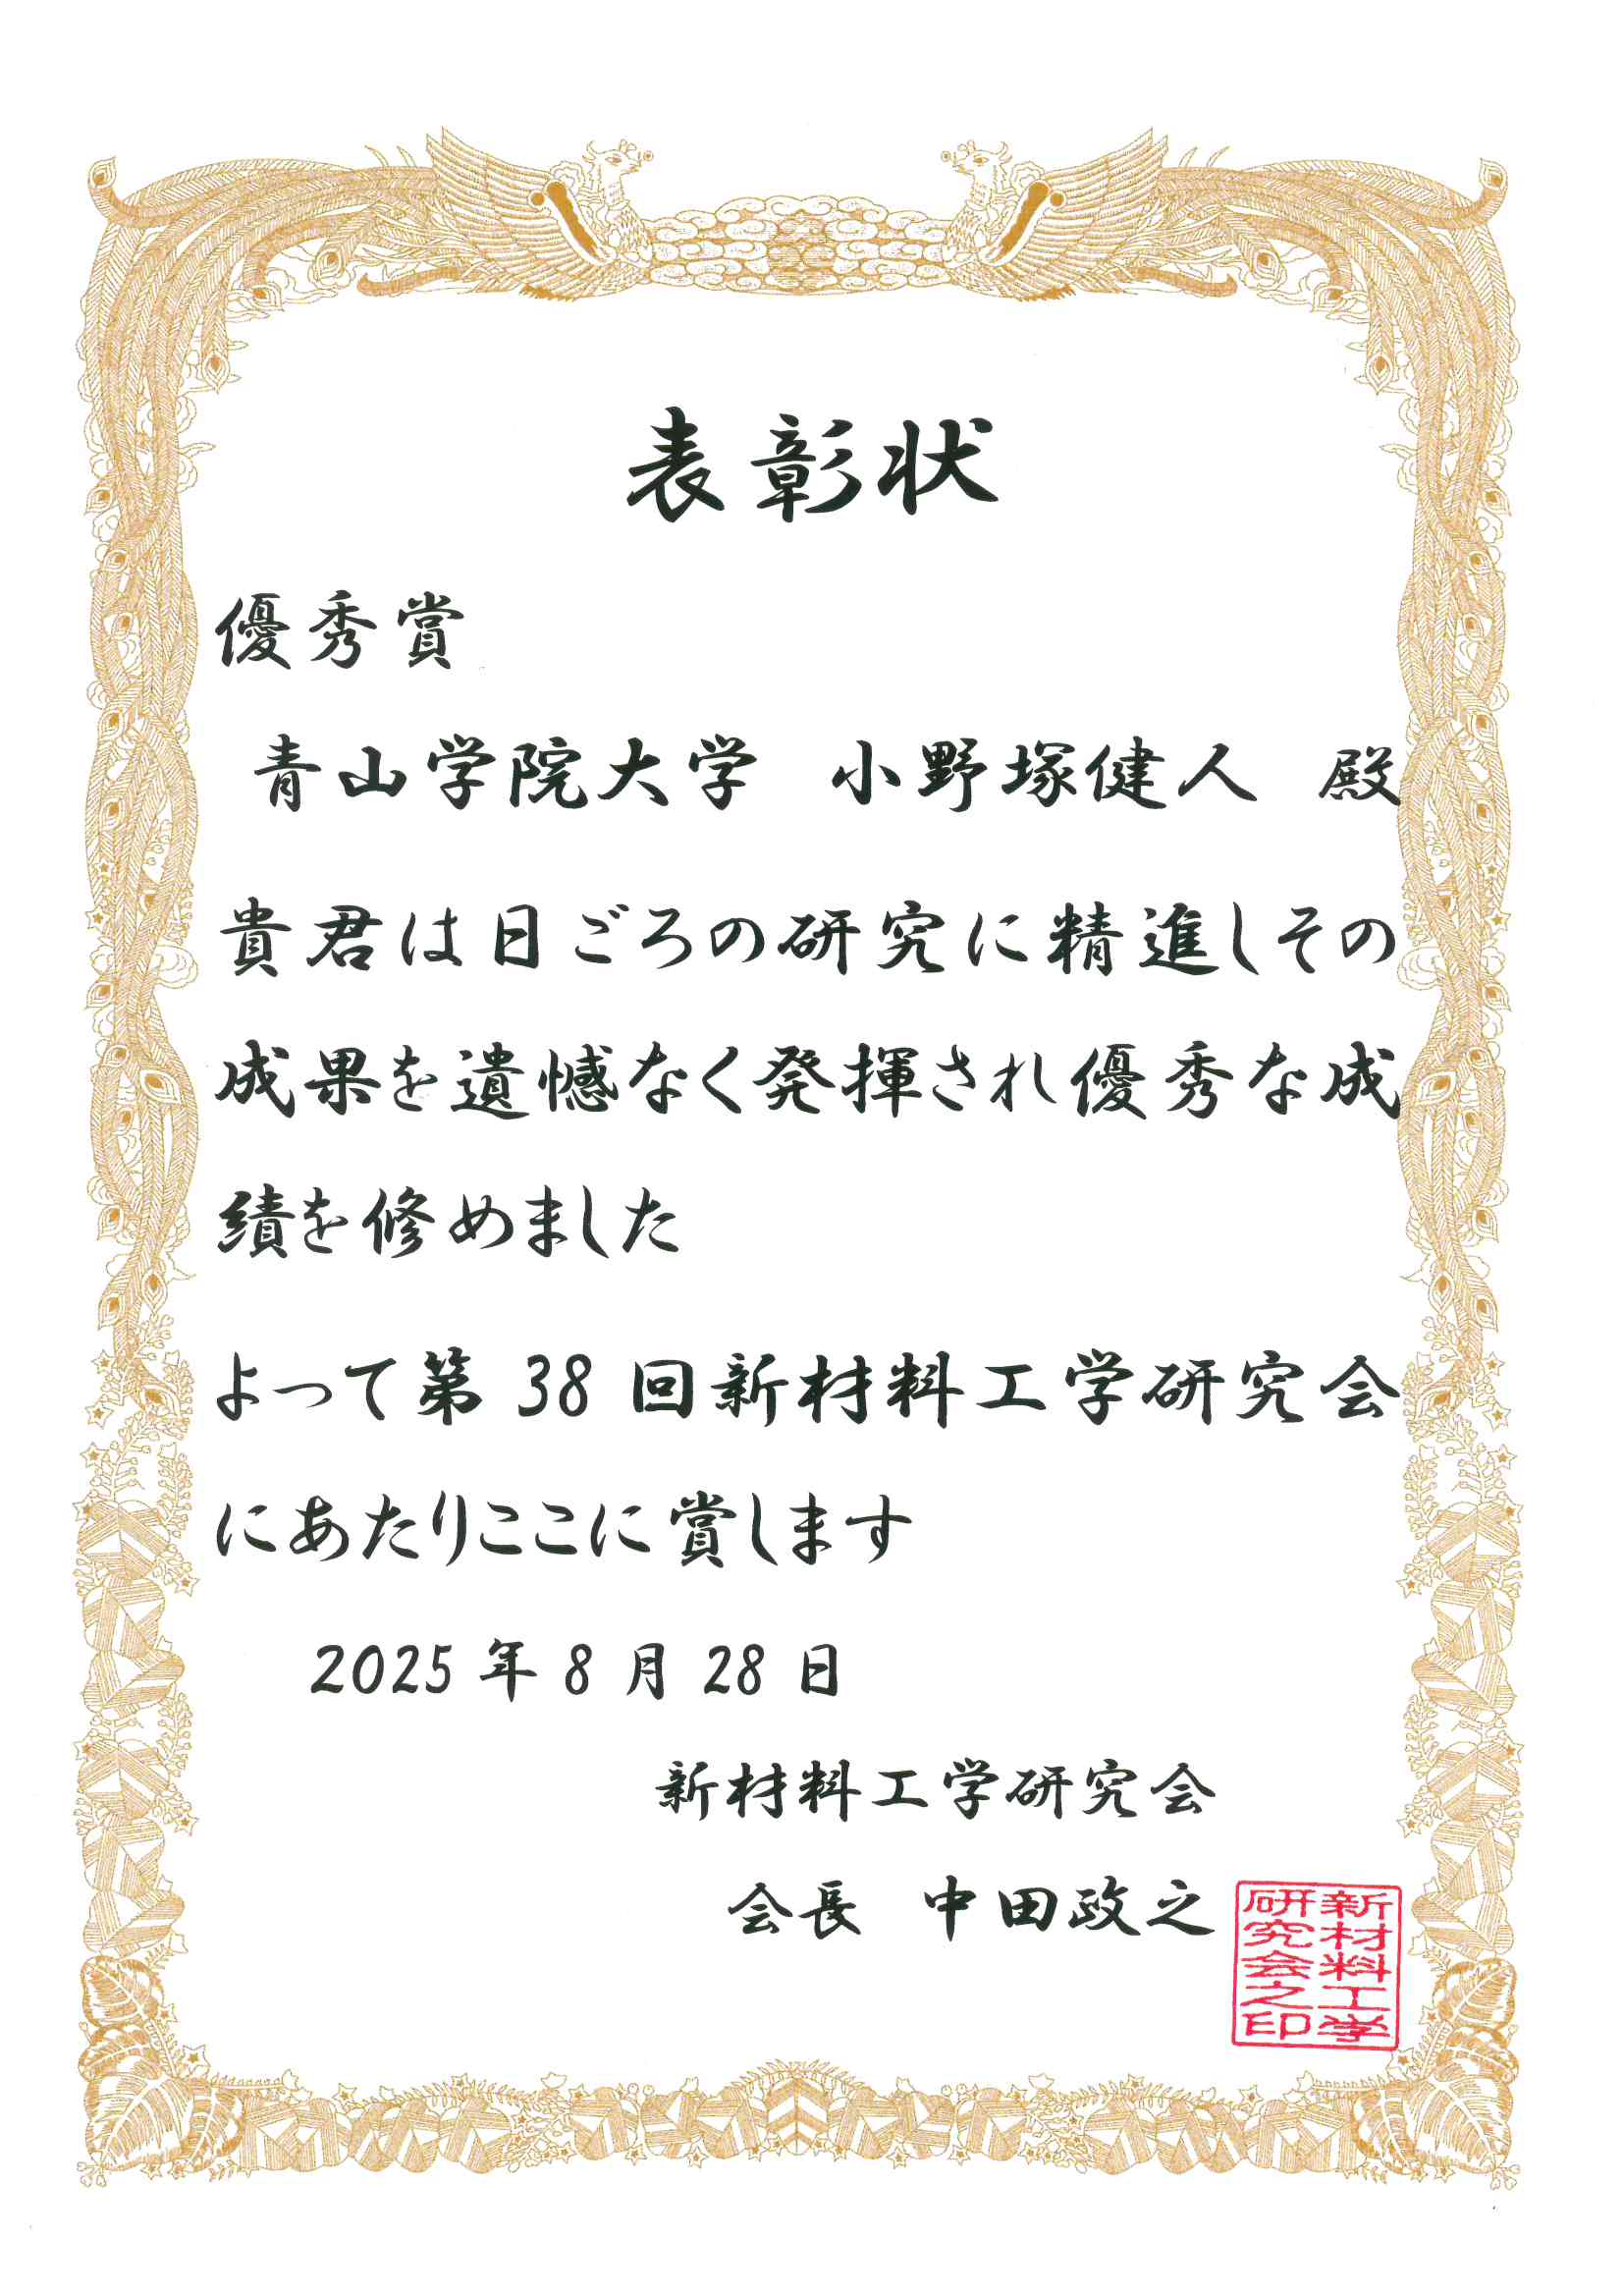 表彰状
優秀賞
青山学院大学 小野塚健人 殿
貴君は日ごろの研究に精進しその
成果を遺憾なく発揮され優秀な成
績を修めました
よって第 38 回新材料工学研究会
にあたりここに賞します
2025 年 8 月 28 日
新材料工学研究会
会長 中田政之
新材料工学
研究会之印